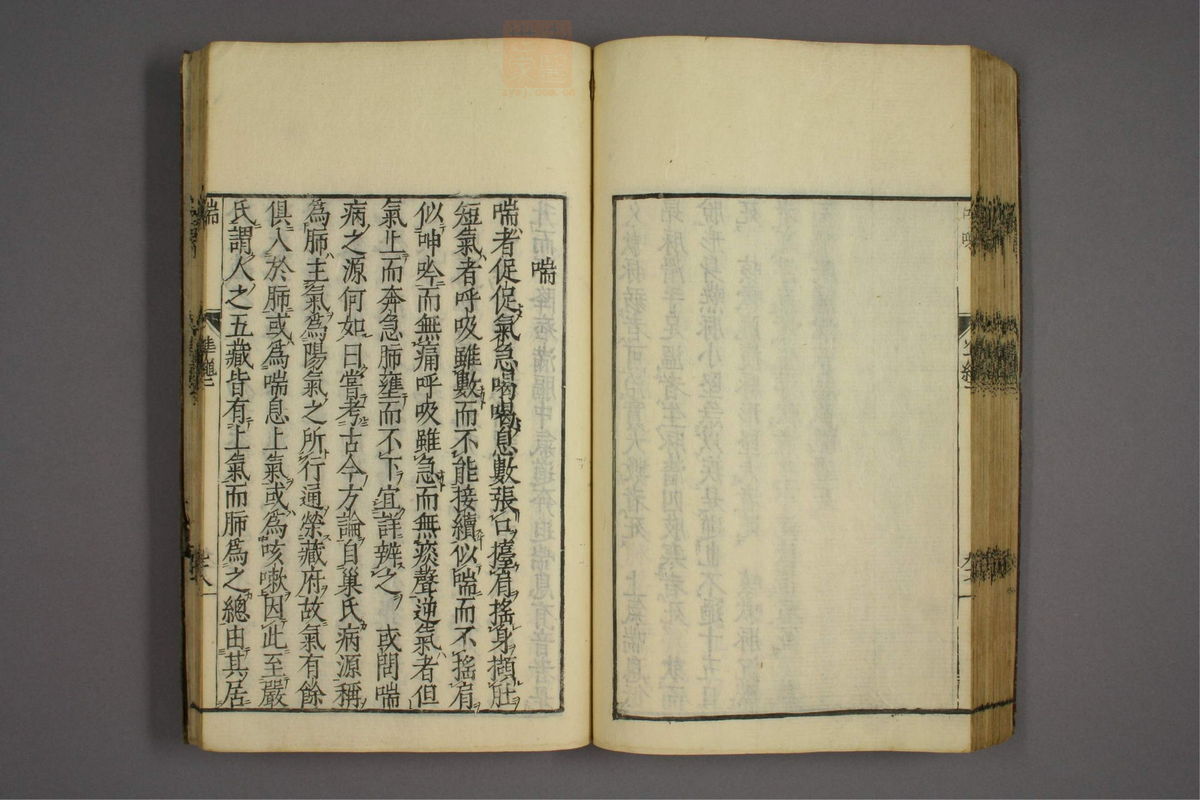 喘
喘者促促氣急喝喝息數張口擡肩搖身擷肚
短氣者呼吸雖數而不能接續似喘而不搖肩
似呻吟而無痛呼吸雖急而無痰聲逆氣者但
氣上而奔急肺壅而不下宜詳辨之 或問喘
病之源何如曰嘗考古今方論自巢氏病源稱
為肺主氣為陽氣之所行通榮藏府故氣有餘
俱入於肺或為喘息上氣或為咳嗽因此至嚴
氏謂人之五藏皆有上氣而肺為之總由其居
喘
準繩